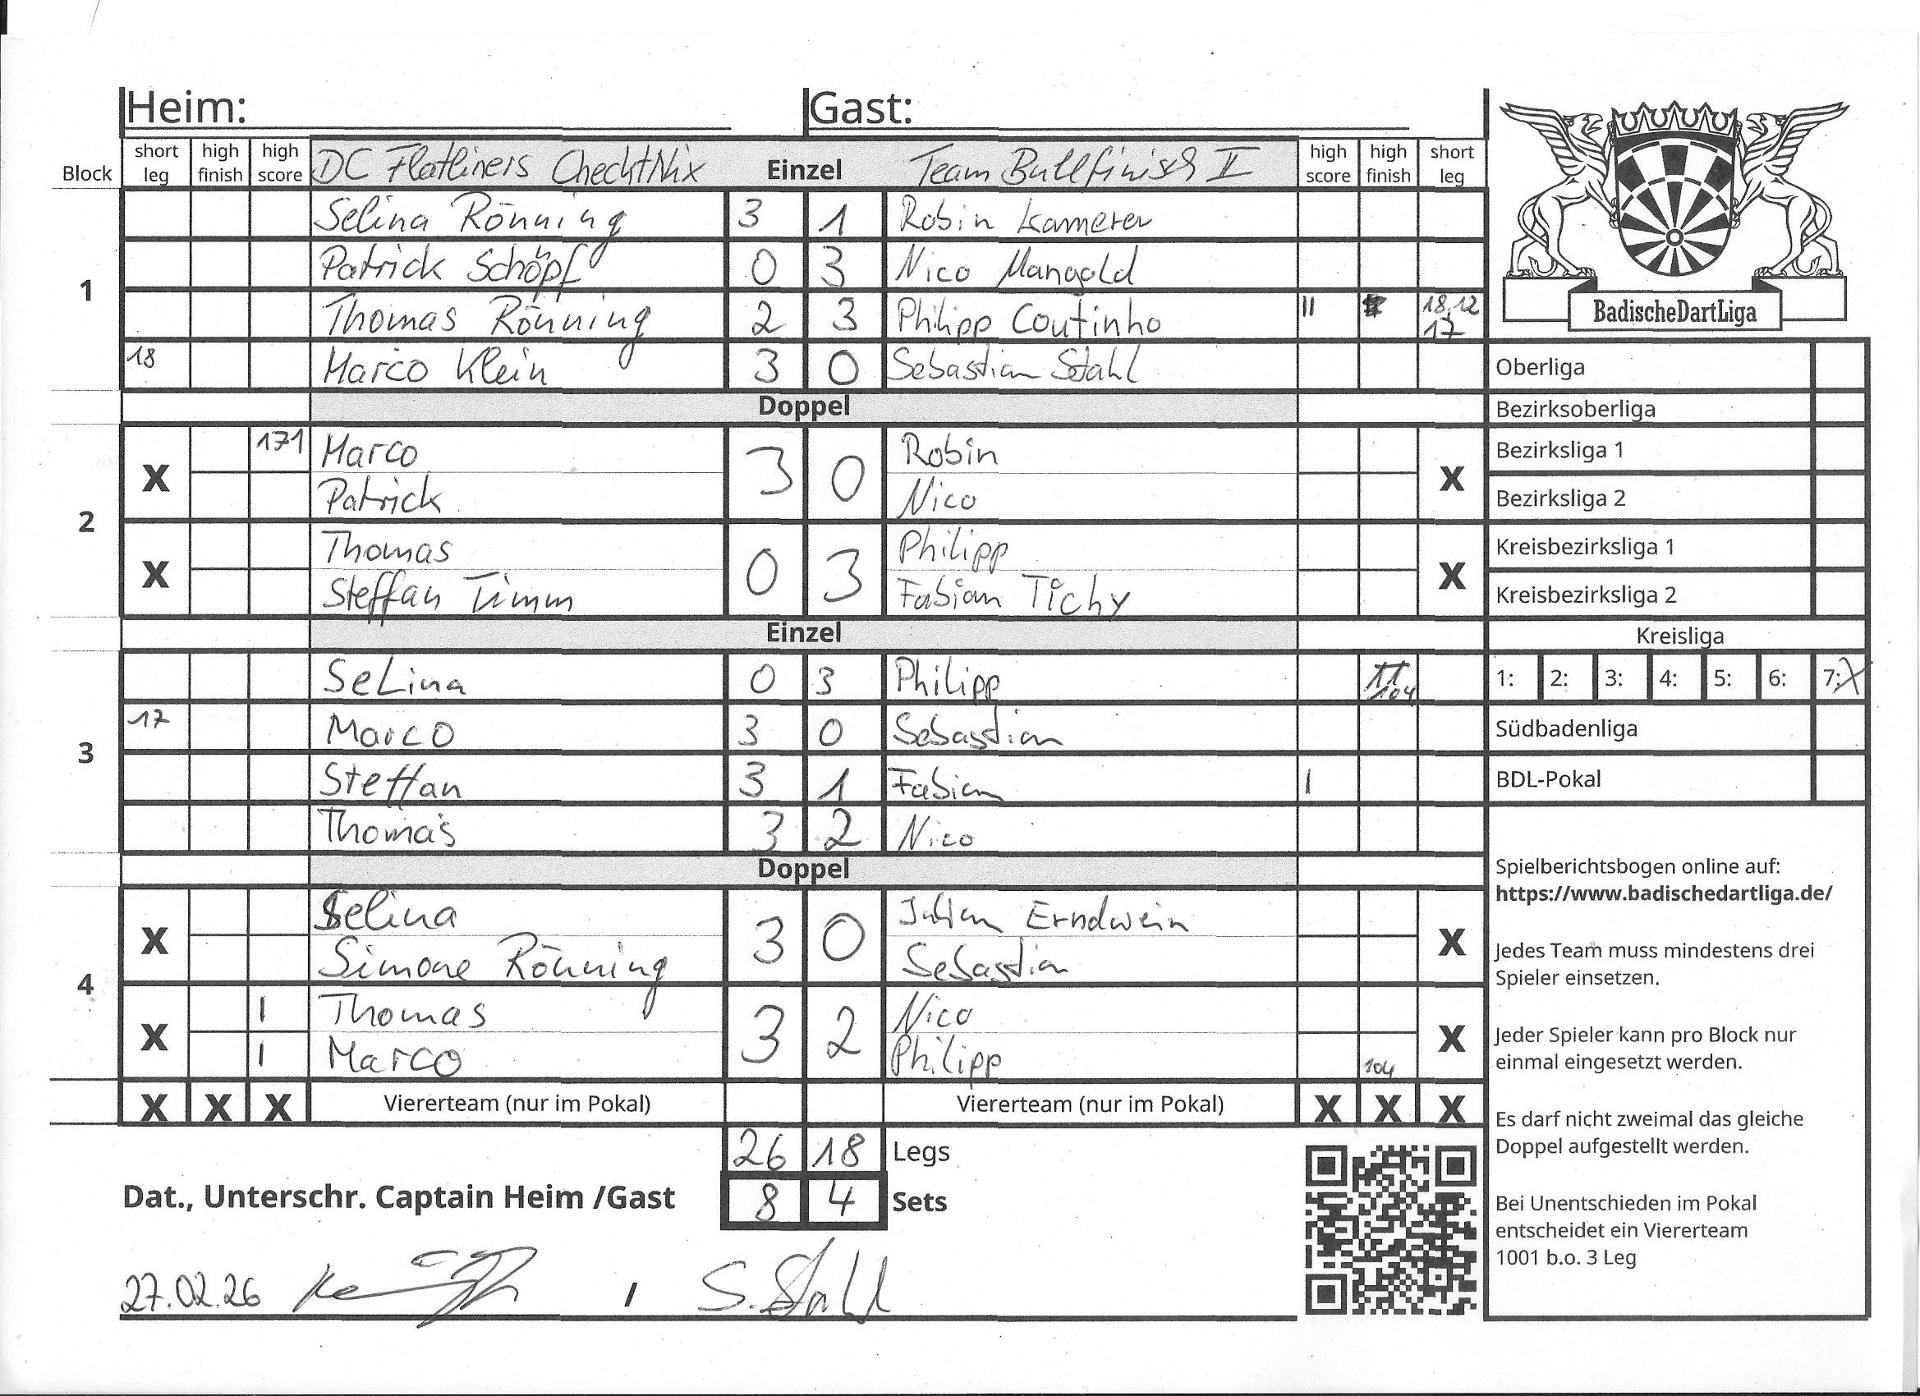 Heim: Gast:
Block short leg high finish high score DC Flatliners ChecktNix Einzel Team Bullfinisch II high score high finish short leg
1
Selina Rönning 3 1 Robin Kamerer
Patrick Schöpf 0 3 Nico Mangold
Thomas Rönning 2 3 Philipp Coutinho II 18,12 17
18 Marco Klein 3 0 Sebastian Stahl
Doppel
2
X 171 Marco 3 0 Robin X
Patrick Nico
X Thomas 0 3 Philipp X
Steffan Timm Fabian Tichy
Einzel
3
Selina 0 3 Philipp 104
17 Marco 3 0 Sebastian
Steffan 3 1 Fabian I
Thomas 3 2 Nico
Doppel
4
X Selina 3 0 Julian Erndwein X
Simone Rönning Sebastian
X I Thomas 3 2 Nico X
I Marco Philipp 104
X X X Viererteam (nur im Pokal) Viererteam (nur im Pokal) X X X
26 18 Legs
8 4 Sets
Dat., Unterschr. Captain Heim /Gast
27.02.26 / S. Stahl
BadischeDartLiga
Oberliga
Bezirksoberliga
Bezirksliga 1
Bezirksliga 2
Kreisbezirksliga 1
Kreisbezirksliga 2
Kreisliga
1: 2: 3: 4: 5: 6: 7: X
Südbadenliga
BDL-Pokal
Spielberichtsbogen online auf:
https://www.badischedartliga.de/
Jedes Team muss mindestens drei
Spieler einsetzen.
Jeder Spieler kann pro Block nur
einmal eingesetzt werden.
Es darf nicht zweimal das gleiche
Doppel aufgestellt werden.
Bei Unentschieden im Pokal
entscheidet ein Viererteam
1001 b.o. 3 Leg